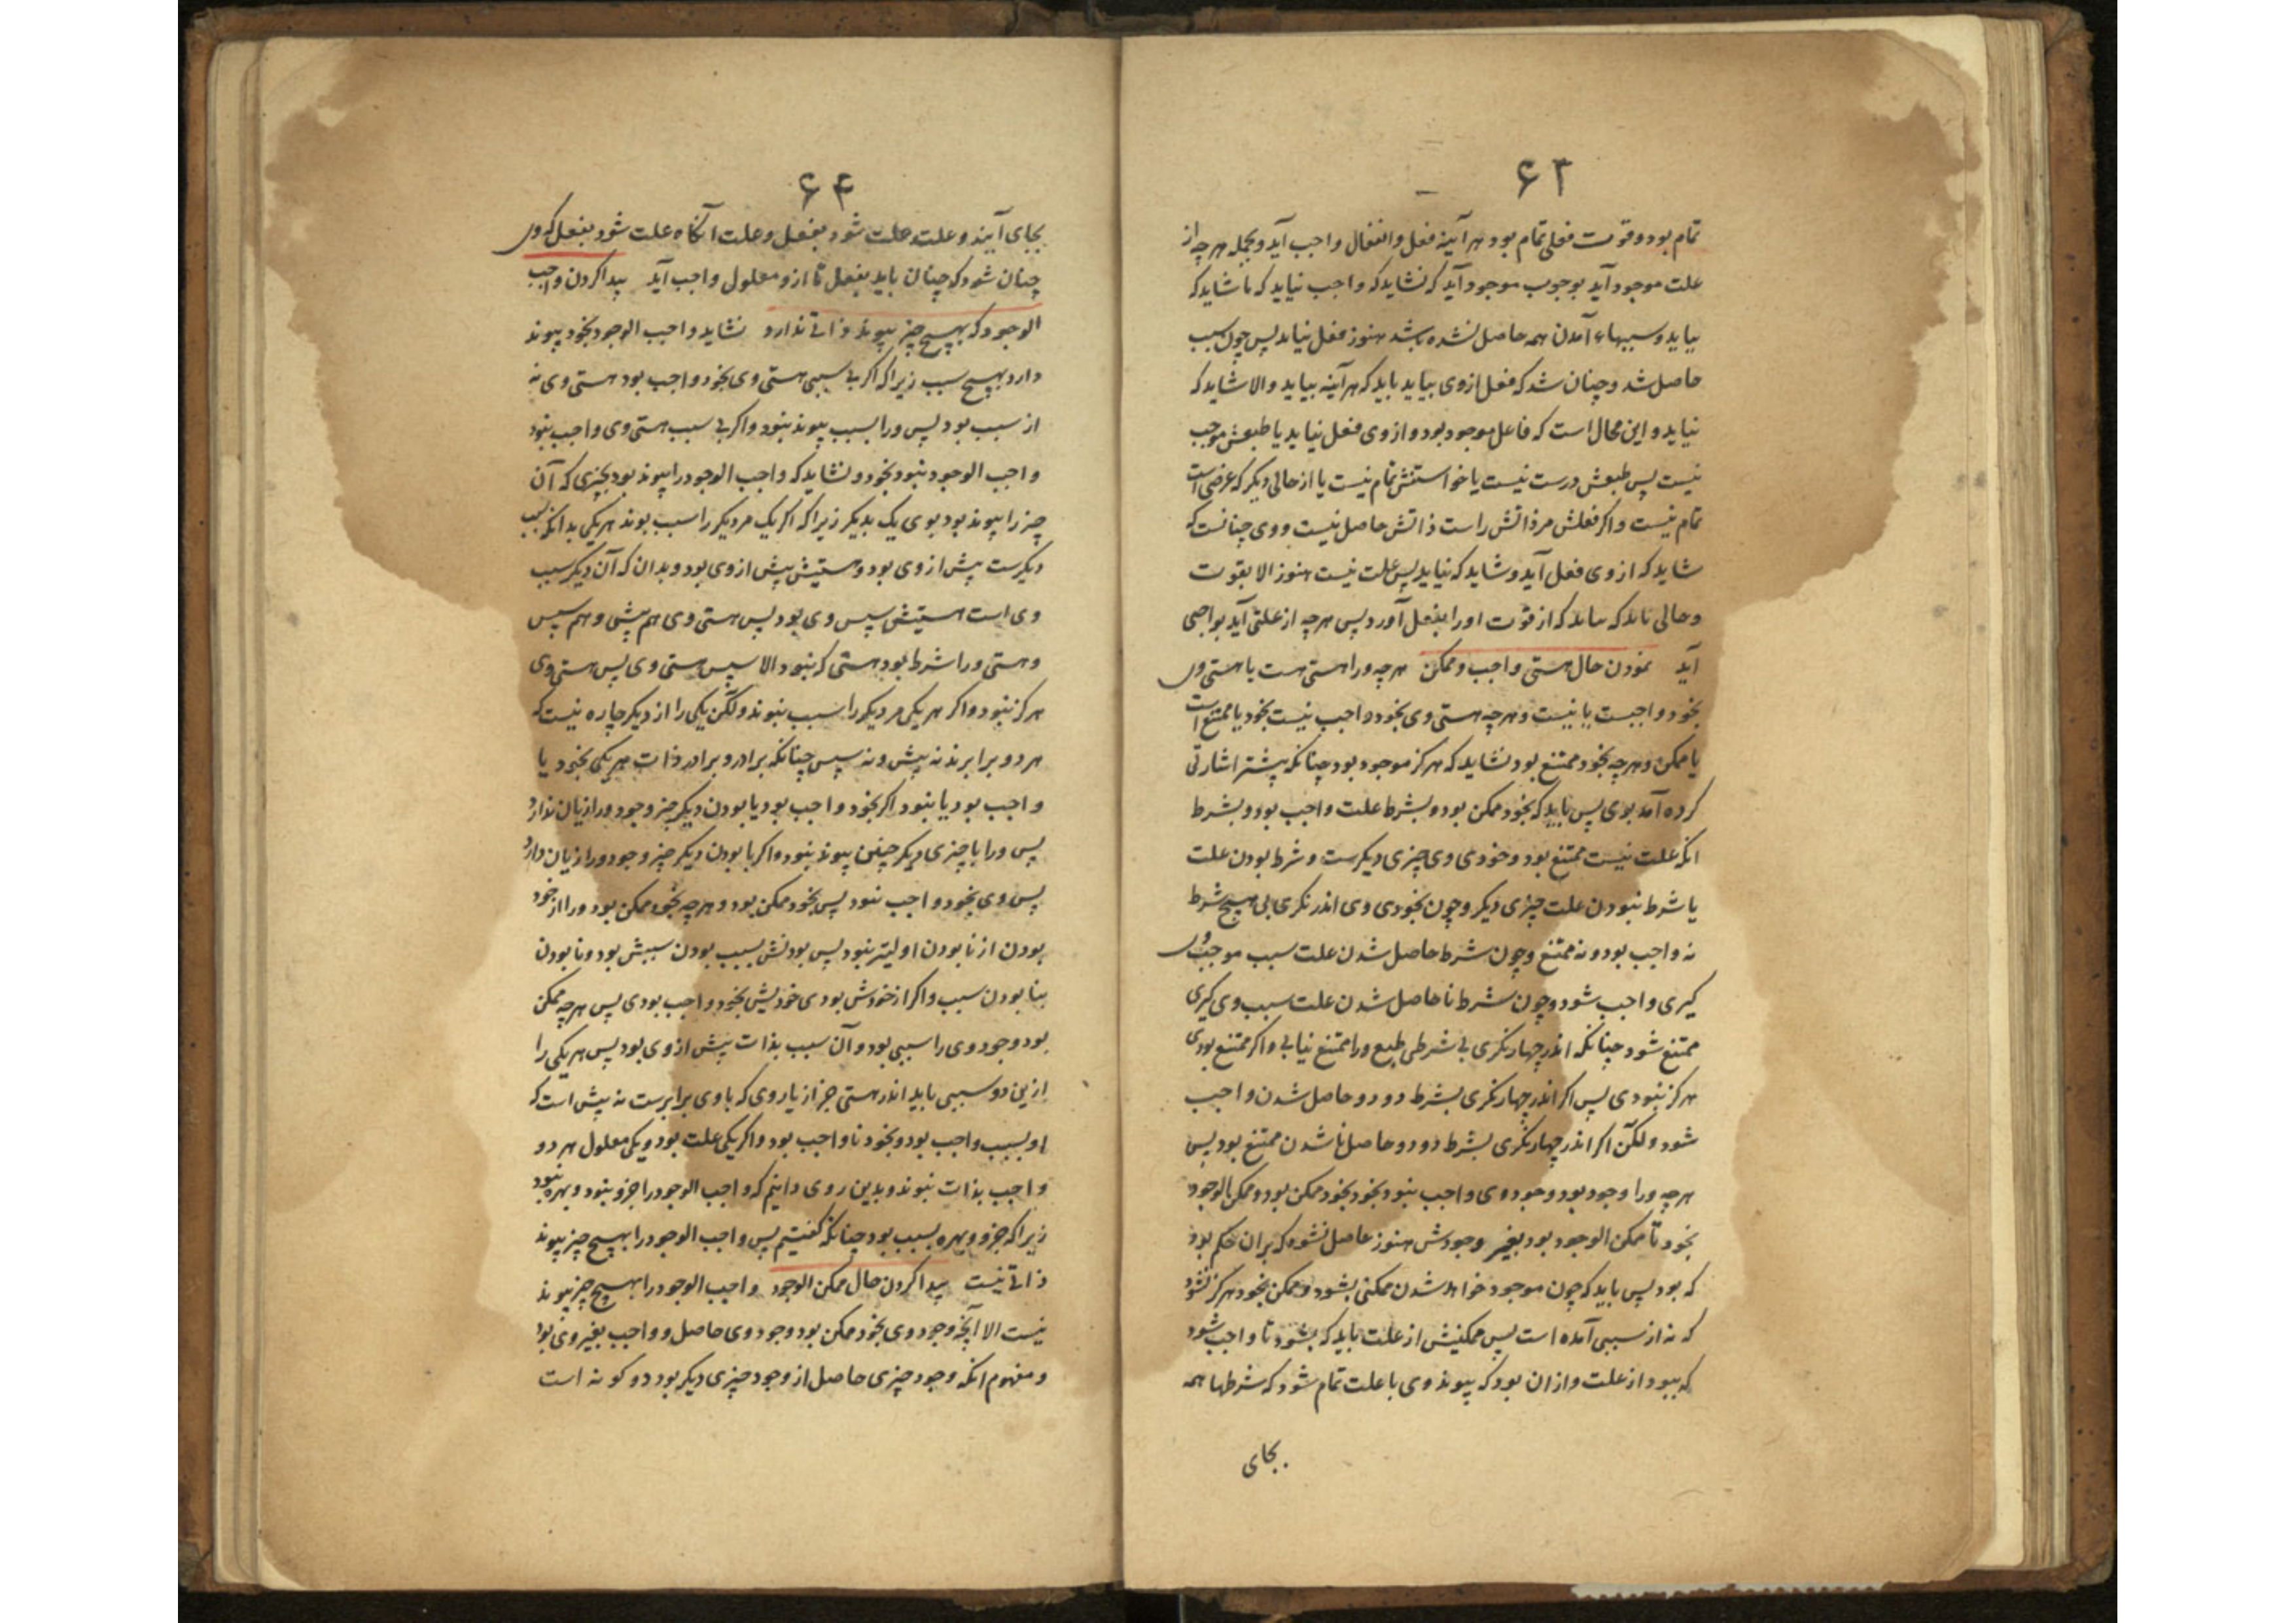 ۶۳
تمام بود و قوت فعلی تمام بود هر آینه فعل و انفعال واجب آید و بجمله هر چه از
علت موجود آید بوجوب موجود آید که نشاید که واجب نیاید که تا شاید که
بیاید و سببهاء آمدن همه حاصل نشده باشد هنوز بفعل نیاید پس چون سبب
حاصل شد و چنان شد که فعل از وی بیاید باید که هر آینه بیاید والا شاید که
نیاید و این محال است که فاعل موجود بود و از وی فعل نیاید یا طبعش موجب
نیست پس طبعش درست نیست یا خواستنش تمام نیست یا از حالی دیگر که عرضی است
تمام نیست و اکر فعلش مر ذاتش راست ذاتش حاصل نیست و وی چنانست که
شاید که از وی فعل آید و شاید که نیاید پس علت نیست هنوز الا بقوت
و حالی باید که بیاید که از قوت او را بفعل آورد پس هر چه از علتی آید بواجبی
آید نمودن حال هستی واجب و ممکن هر چه ورا هستی هست یا هستی وی
بخود واجبست یا نیست و هر چه هستی وی بخود واجب نیست بخود یا ممتنع است
یا ممکن و هر چه بخود ممتنع بود نشاید که هرکز موجود بود چنانکه پیشتر اشارتی
کرده آمد بوی پس باید که بخود ممکن بود و بشرط علت واجب بود و بشرط
انکه علت نیست ممتنع بود و خودی وی چیزی دیکرست و شرط بودن علت
یا شرط نبودن علت چیزی دیکر و چون بخودی وی اندر نکری بی هیچ شرط
نه واجب بود و نه ممتنع و چون شرط حاصل شدن علت سبب موجب وی
کیری واجب شود و چون شرط نا حاصل شدن علت سبب وی کیری
ممتنع شود چنانکه اندر چهار نکری بی شرطی طبع ورا ممتنع نیابی و اکر ممتنع بودی
هرکز نبودی پس اکر اندر چهار نکری بشرط دو دو حاصل شدن واجب
شود ولکن اکر اندر چهار نکری بشرط دو دو حاصل ناشدن ممتنع بود پس
هر چه ورا وجود بود و وجود وی واجب نبود بخود بخود ممکن بود و ممکن الوجود
بخود تا ممکن الوجود بود بغیر وجودش هنوز حاصل نشود که بران حکم بود
که بود پس باید که چون موجود خواهد شدن ممکنی بشود و ممکن بخود هرکز نشود
که نه از سببی آمده است پس ممکنیش از علت باید که بشود تا واجب شود
که ببود از علت و از ان بود که پیوند وی با علت تمام شود که شرطها همه
بجای
۶۴
بجای آیند و علت علت شود بفعل و علت انکاه علت شود بفعل که وی
چنان شود که چنان باید بفعل تا از و معلول واجب آید پیدا کردن واجب
الوجود که بهیچ چیز پیوند ذاتی ندارد نشاید واجب الوجود بخود پیوند
دارد بهیچ سبب زیرا که اکر بی سببی هستی وی بخود واجب بود هستی وی نه
از سبب بود پس ورا بسبب پیوند نبود و اکر بی سبب هستی وی واجب نبود
واجب الوجود نبود بخود و نشاید که واجب الوجود را پیوند بود بچیزی که آن
چیز را پیوند بود بوی یک بدیکر زیرا که اکر یک مر دیکر را سبب بوند هر یکی بدانکه سبب
دیکرست پیش از وی بود و هستیش پیش از وی بود و بدان که آن دیکر سبب
وی است هستیش سپس وی بود پس هستی وی هم پیش و هم سپس
و هستی ورا شرط بود هستی که نبود الا سپس هستی وی پس هستی وی
هرکز نبود و اکر هر یکی مر دیکر را سبب نبوند ولکن یکی را از دیکر چاره نیست که
هر دو برابرند نه پیش و نه سپس چنانکه برادر و برادر ذات هر یکی بخود یا
واجب بود یا نبود اکر بخود واجب بود یا بودن دیکر چیز وجود ورا زیان ندارد
پس ورا با چیزی دیکر چنین پیوند نبود و اکر نا بودن دیکر چیز وجود ورا زیان دارد
پس وی بخود واجب نبود پس بخود ممکن بود و هر چه بخود ممکن بود ورا از خود
بودن از نا بودن اولیتر نبود پس بودنش بسبب بودن سببش بود و نا بودن
بنا بودن سبب و اکر از خودش بودی خودیش بخود واجب بودی پس هر چه ممکن
بود وجود وی را سببی بود و آن سبب بذات پیش از وی بود پس هر یکی را
ازین دو سببی باید اندر هستی جز از یار وی که با وی برابرست نه پیش است که
او بسبب واجب بود و بخود نا واجب بود و اکر یکی علت بود و یکی معلول هر دو
واجب بذات نبوند و بدین روی دانیم که واجب الوجود را جزو نبود و بهره نبود
زیرا که جزو و بهره بسبب بود چنانکه کفتیم پس واجب الوجود را بهیچ چیز پیوند
ذاتی نیست پیدا کردن حال ممکن الوجود واجب الوجود را بهیچ چیز پیوند
نیست الا آنچه وجود وی بخود ممکن بود وجود وی حاصل و واجب بغیر وی بود
و مفهوم انکه وجود چیزی حاصل از وجود چیزی دیکر بود دو کونه است